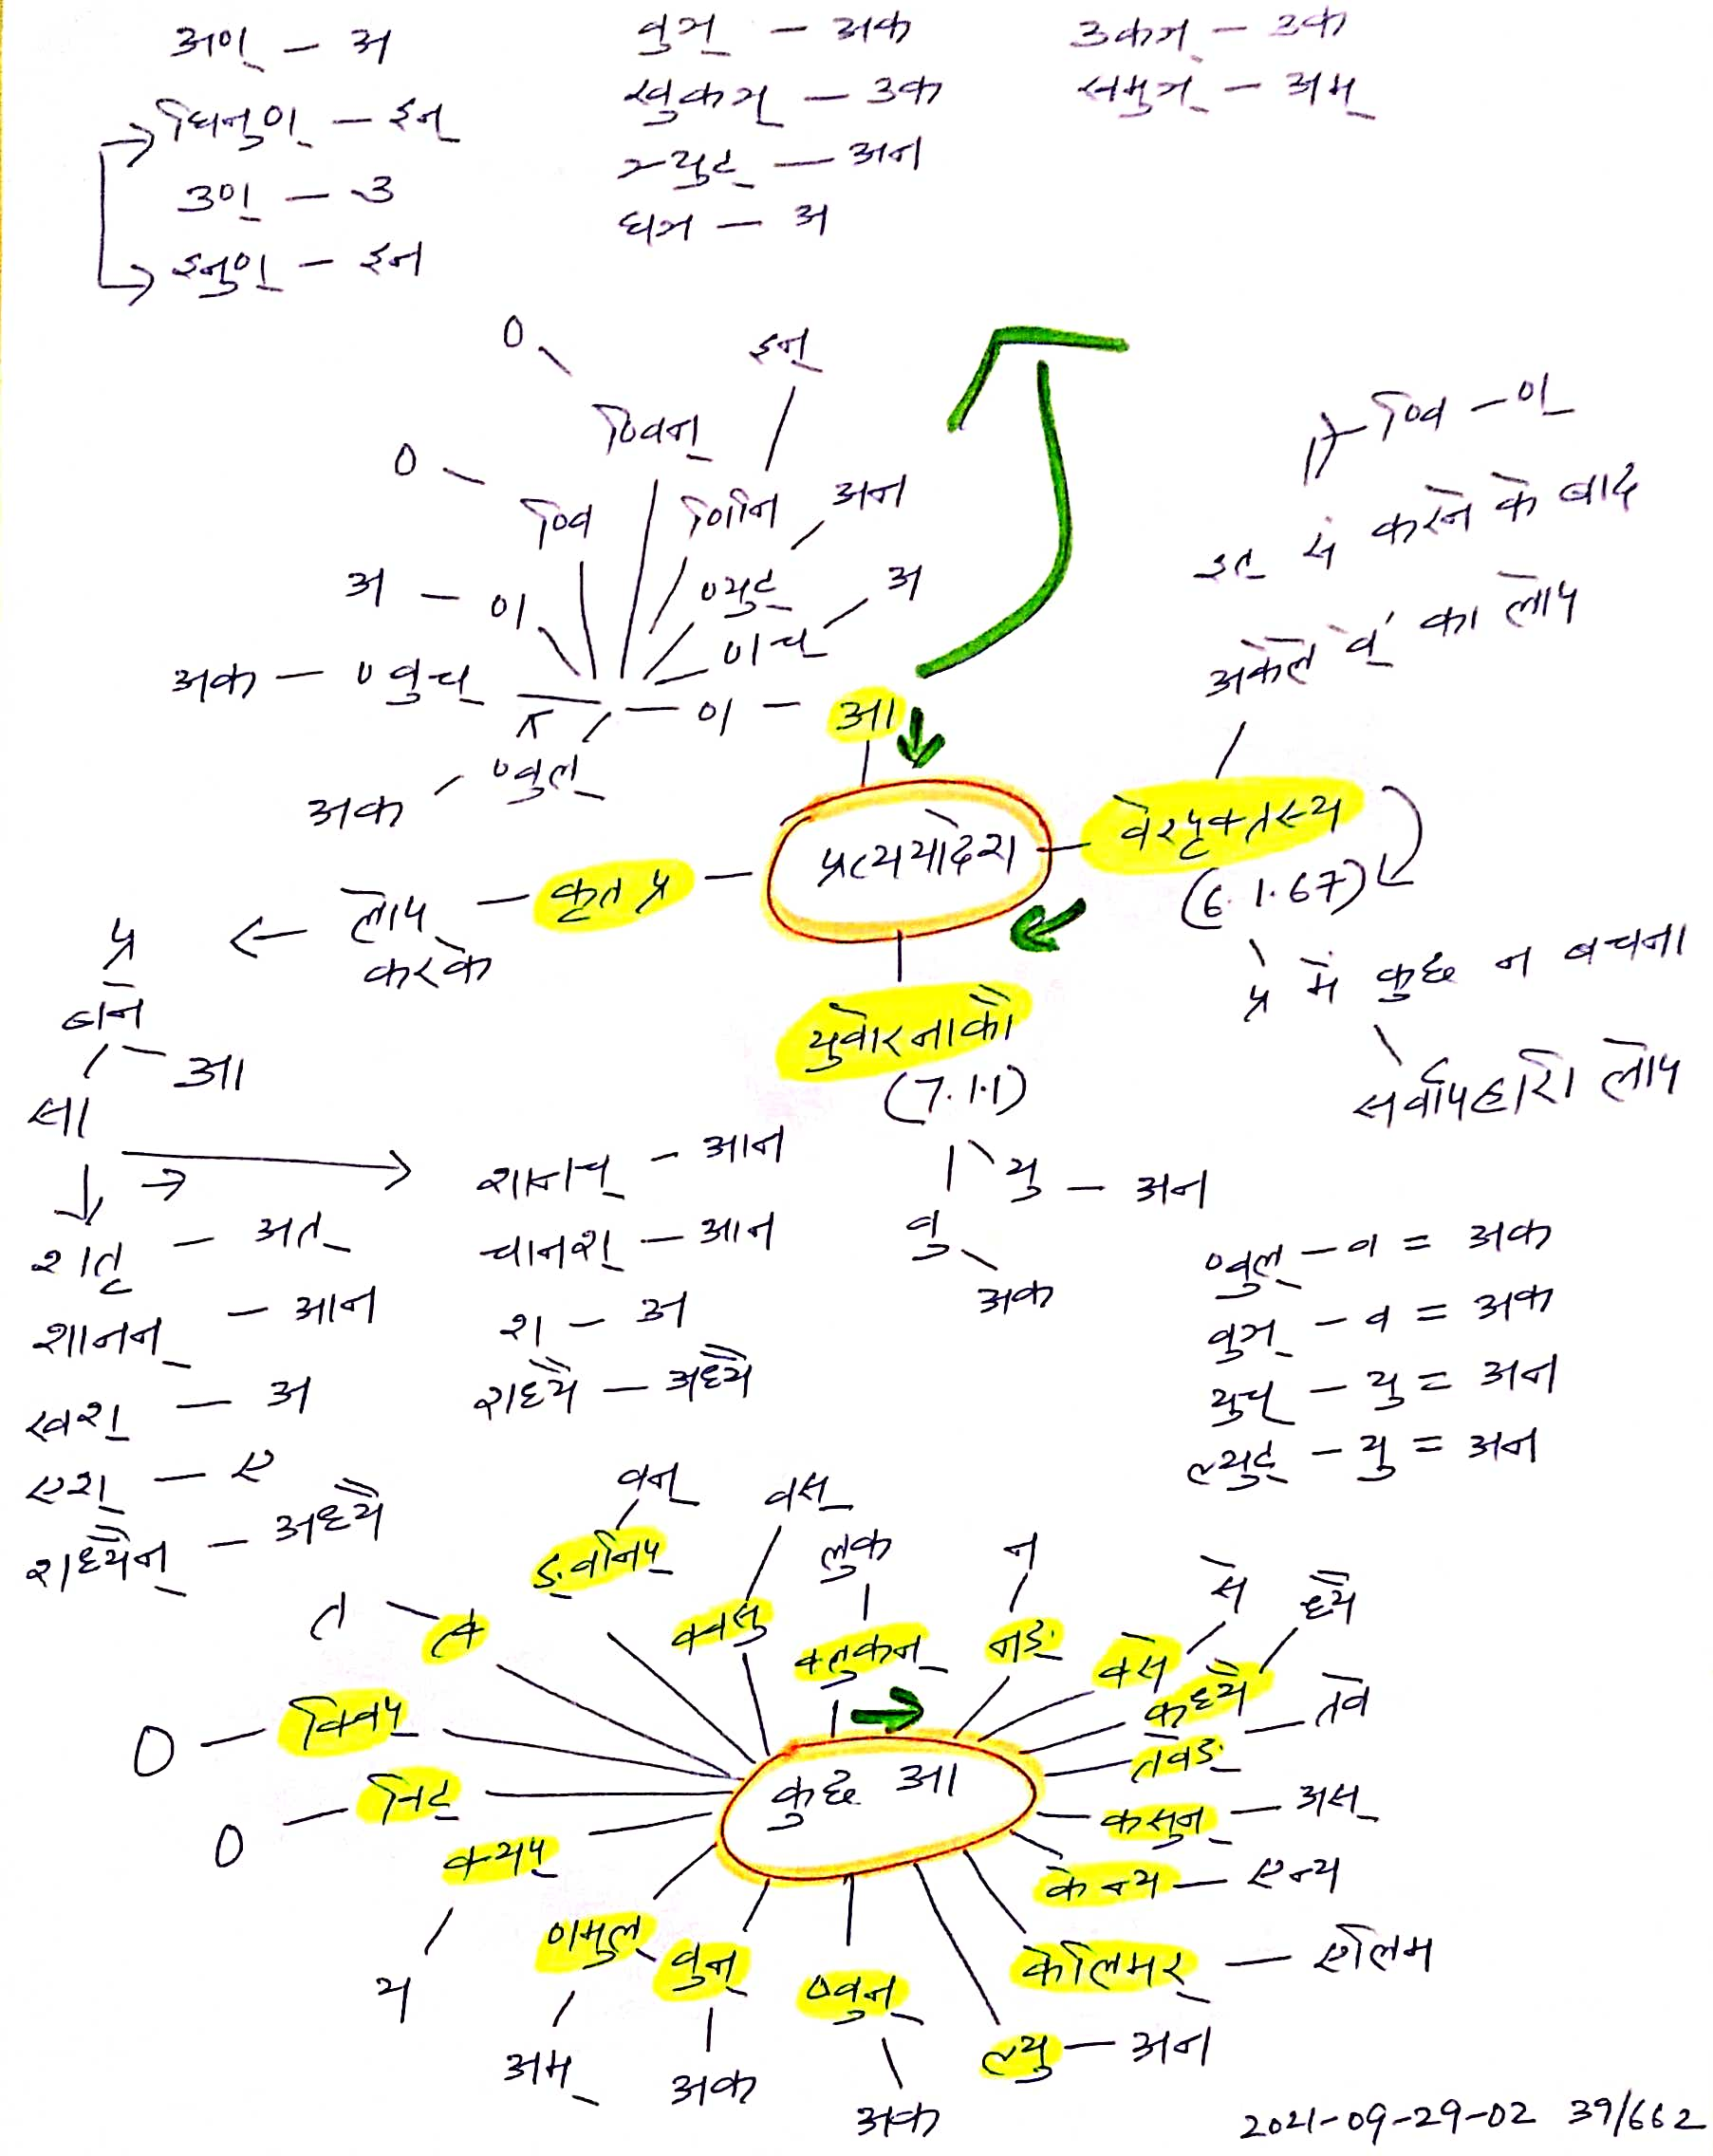 अण् - अ
घिनुण् - इन्
उण् - उ
इनुण् - इन
वुञ् - अक
खुकञ् - उक
ल्युट् - अन
घञ - अ
उकञ् - उक
णमुल् - अम्
0
इन्
ण्विन्
0
ण्वि
णिनि
अन
अ - ण
ण्युट्
अ
अक - ण्वुच्
णच्
ण - आ
अक
ण्वुल्
ण्वि - ण्
इत् सं करने के बाद
अकेले 'व्' का लोप
वेरपृक्तस्य
(6.1.67)
प्र में कुछ न बचना
सर्वापहारी लोप
प्रत्ययादेश
कृत प्र - लोप करके
प्र
बने
आ
सा
युवोरनाकौ
(7.1.1)
यु - अन
वु
अक
शतृ - अत्
शानन् - आन
खश् - अ
एश् - ए
शध्यैन् - अध्यै
शानच् - आन
चानश् - आन
श - अ
शध्यै - अध्यै
ण्वुल् - व = अक
वुञ् - व = अक
युच् - यु = अन
ल्युट् - यु = अन
वन्
ङ्वनिप्
वस्
क्वसु
लुक
क्लुकन्
न
नङ्
से
क्से
ध्यै
कध्यै
तवे
तवेङ्
कसुन् - अस्
केन्य - एन्य
केलिमर् - एलिम
ल्यु - अन
ण्वुन्
अक
वुन्
अक
णमुल
अम्
क्यप्
य
0
0 - क्विप्
त
क्त
कुछ आ
2021-09-29-02 39/662